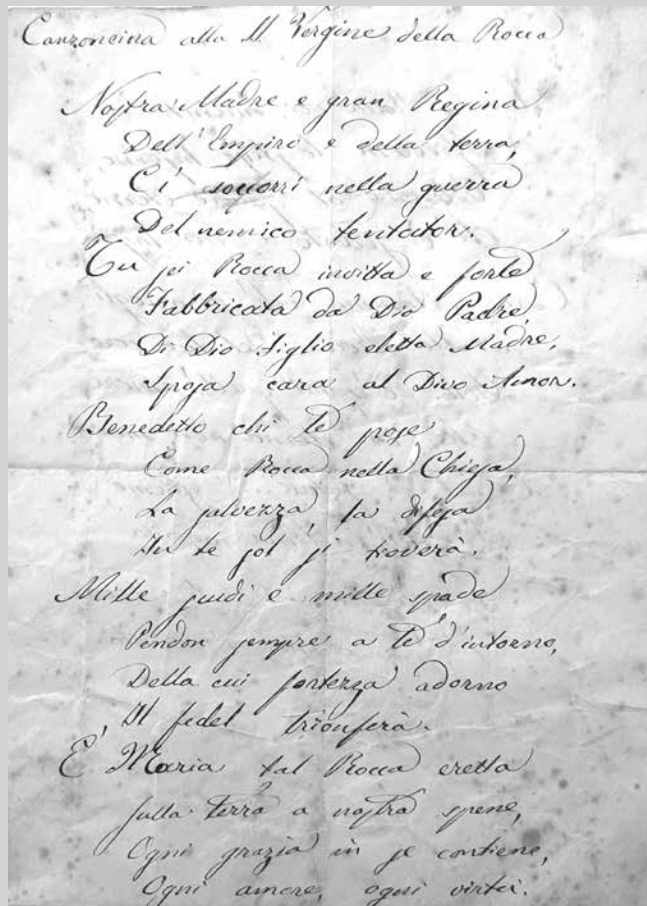 Canzoncina alla SS. Vergine della Rocca
Nostra Madre e gran Regina
Dell'Empiro e della terra,
Ci soccorri nella guerra
Del nemico tentator.
Tu sei Rocca invitta e forte
Fabbricata da Dio Padre,
Di Dio figlio eletta Madre,
Sposa cara al Divo Amor.
Benedetto chi te pose
Come Rocca nella Chiesa,
La salvezza, la difesa
In te sol si troverà.
Mille scudi e mille spade
Pendon sempre a te d'intorno,
Della cui fortezza adorno
Il fedel trionferà.
È Maria tal Rocca eretta
sulla terra a nostra spene,
Ogni grazia in se contiene,
Ogni amore, ogni virtù.